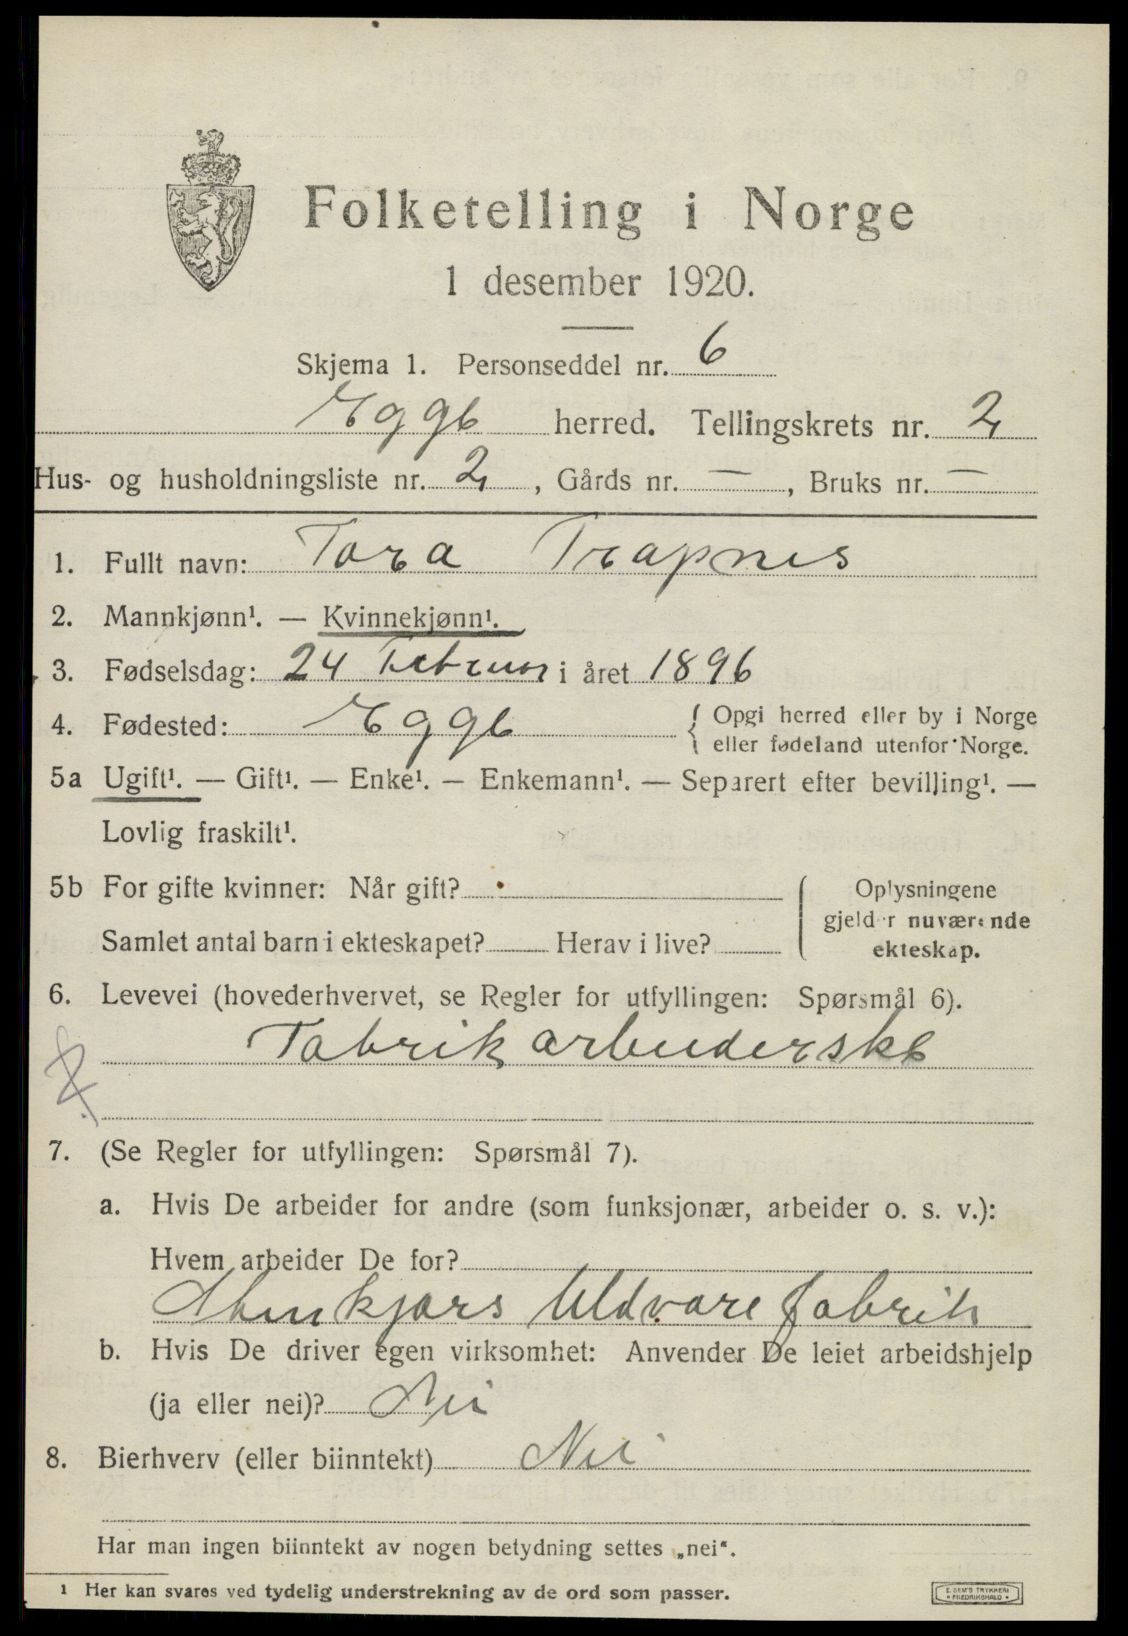 Folketelling i Norge
1 desember 1920.
Skjema 1. Personseddel nr. 6
Egge herred. Tellingskrets nr. 2
Hus- og husholdningsliste nr. 2, Gårds nr. —, Bruks nr. —
1. Fullt navn: Tora Trapnes
2. Mannkjønn¹. — Kvinnekjønn¹.
3. Fødselsdag: 24 Februar i året 1896
4. Fødested: Egge { Opgi herred eller by i Norge
eller fødeland utenfor Norge.
5a Ugift¹. — Gift¹. — Enke¹. — Enkemann¹. — Separert efter bevilling¹. —
Lovlig fraskilt¹.
5b For gifte kvinner: Når gift? { Oplysningene
gjelder nuværende
Samlet antal barn i ekteskapet? Herav i live? ekteskap.
6. Levevei (hovederhvervet, se Regler for utfyllingen: Spørsmål 6).
Fabrikarbeiderske
7. (Se Regler for utfyllingen: Spørsmål 7).
a. Hvis De arbeider for andre (som funksjonær, arbeider o. s. v.):
Hvem arbeider De for?
Stenkjærs Uldvarefabrik
b. Hvis De driver egen virksomhet: Anvender De leiet arbeidshjelp
(ja eller nei)? Nei
8. Bierhverv (eller biinntekt) Nei
Har man ingen biinntekt av nogen betydning settes „nei“.
¹ Her kan svares ved tydelig understrekning av de ord som passer.
E. SEM'S TRYKKERI
FREDRIKSHALD